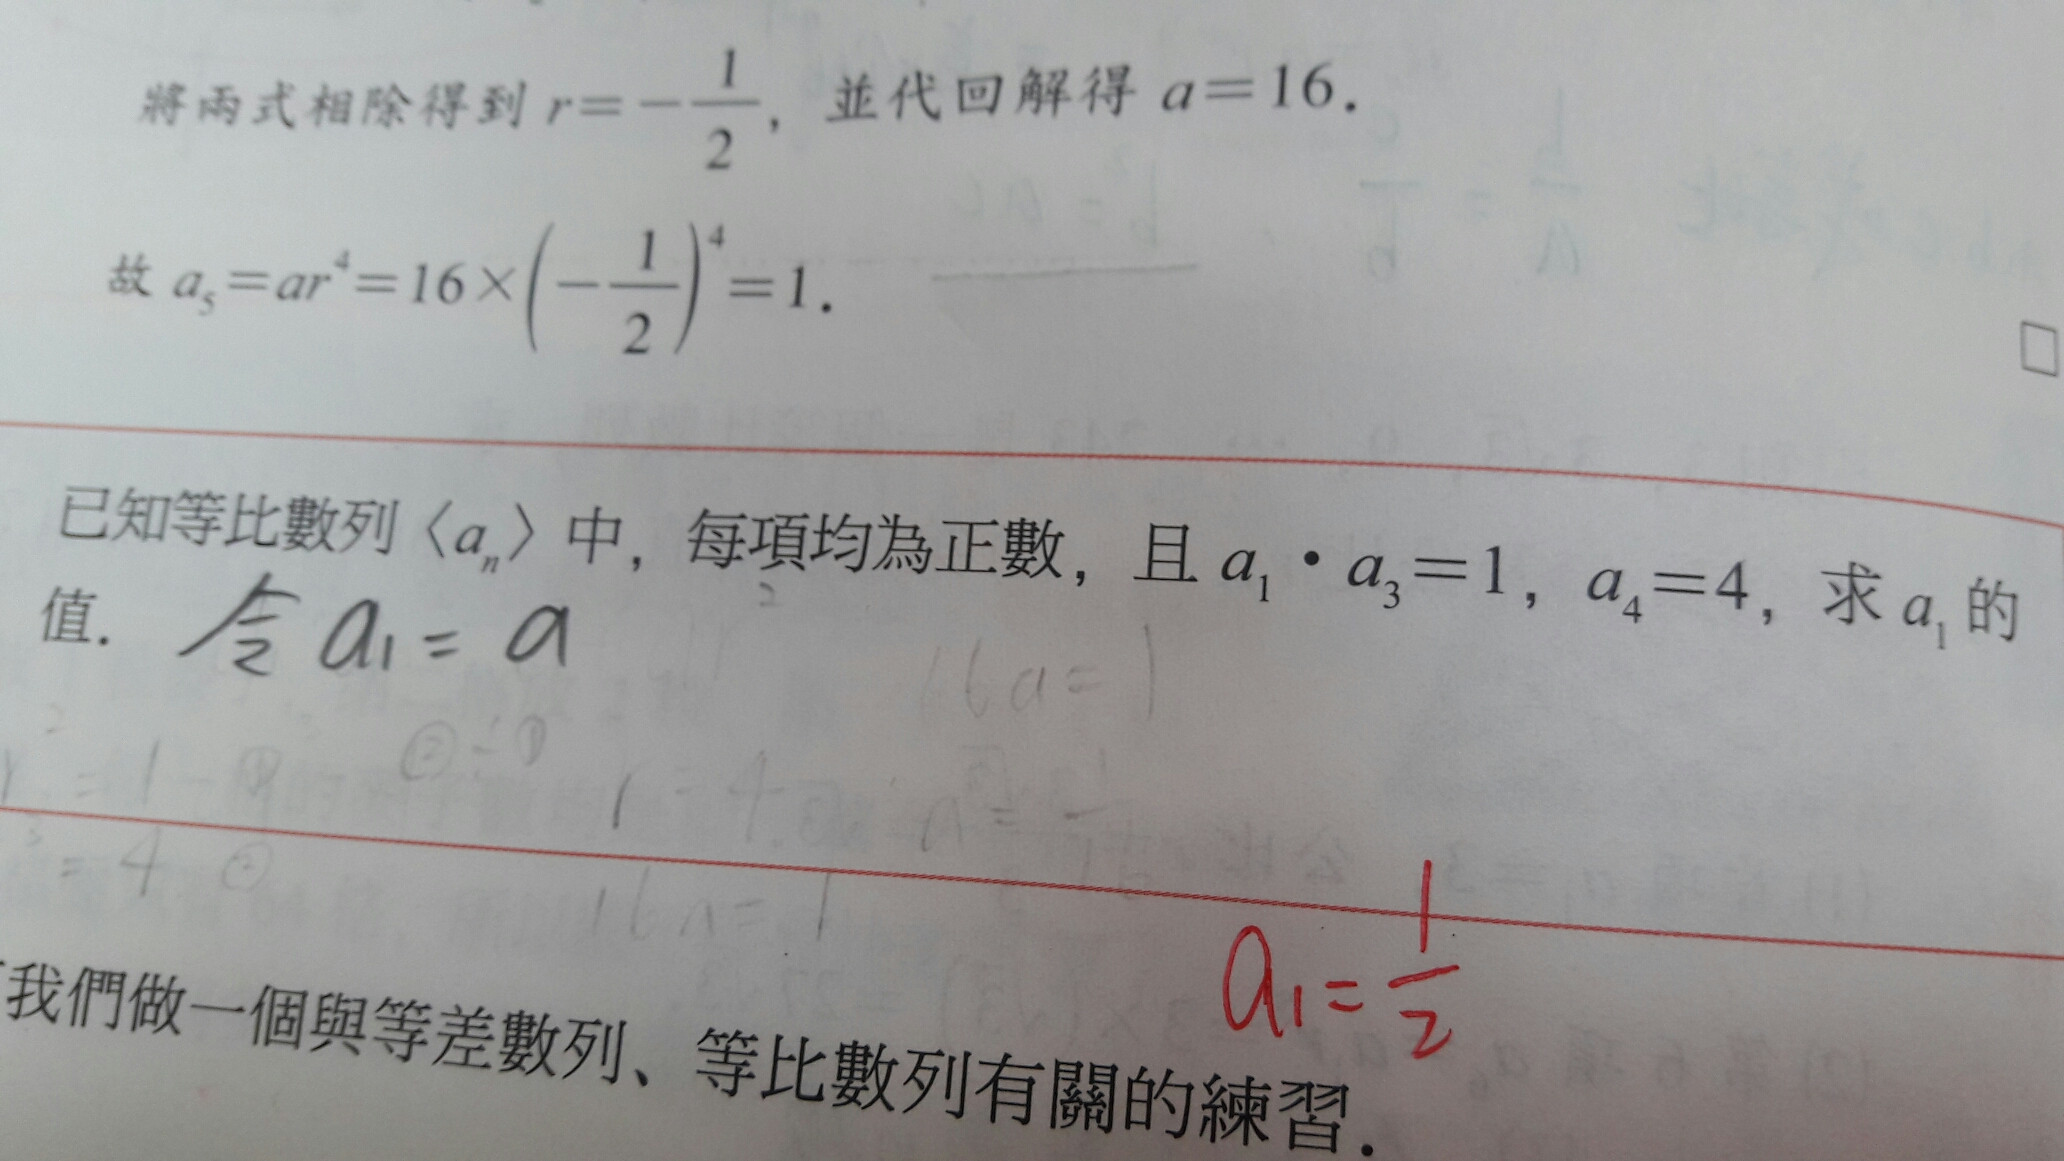 將兩式相除得到 r=-1/2，並代回解得 a=16.
故 a₅=ar⁴=16×(-1/2)⁴=1.
已知等比數列〈aₙ〉中，每項均為正數，且 a₁・a₃=1，a₄=4，求 a₁ 的
值. 令 a₁=a
16a=1
r²=1-① ②÷① r=4
³=4 ②
16a=1
a₁=1/2
我們做一個與等差數列、等比數列有關的練習.